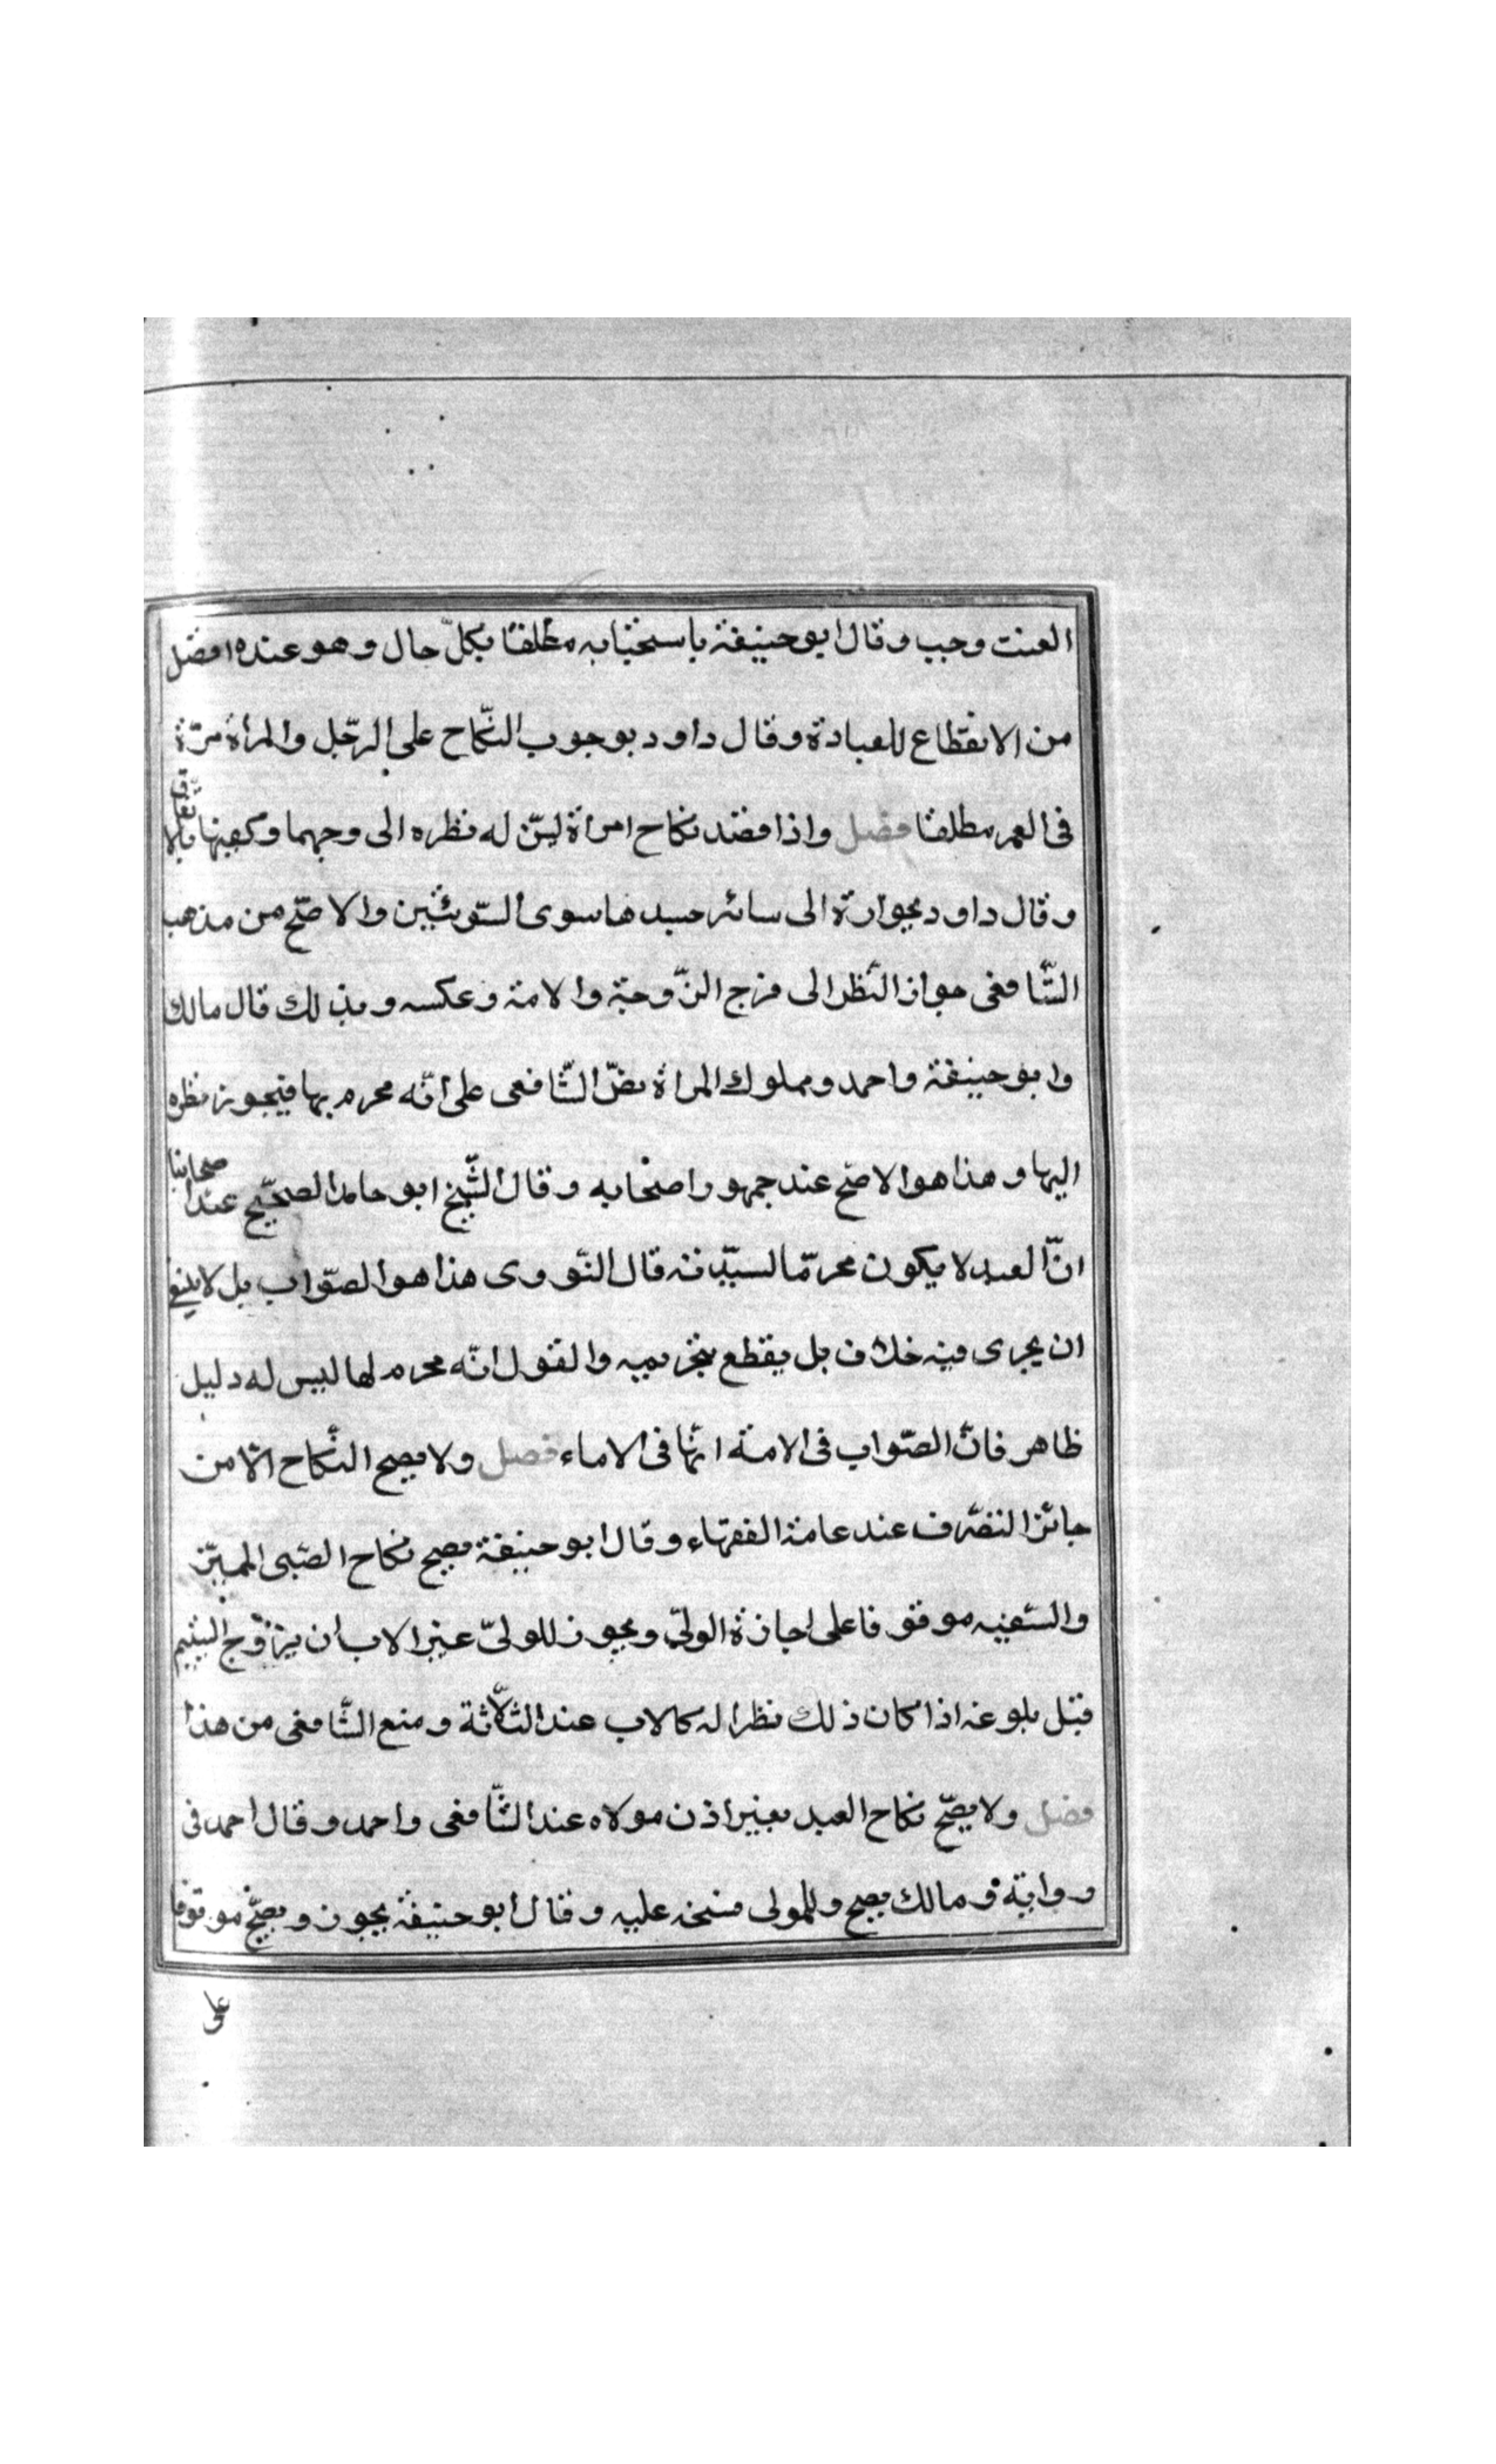 العنت وجب وقال ابوحنيفة باستحبابه مطلقا بكلّ حال وهو عنده افضل
من الانقطاع للعبادة وقال داود بوجوب النّكاح على الرّجل والمرأة مرّة
فى العمر مطلقا فصل واذا قصد نكاح امرأة ليسنّ له نظره الى وجهها وكفيها بالاتّفاق
وقال داود بجوازه الى سائر جسدها سوى السّوءتين والاصحّ من مذهب
الشّافعى جواز النّظر الى فرج الزّوجة والامة وعكسه وبذلك قال مالك
وابو حنيفة واحمد ومملوك المرأة نصّ الشّافعى على انّه محرم بها فيجوز نظره
اليها وهذا هو الاصحّ عند جمهور اصحابه وقال الشّيخ ابو حامد الصحيح عند اصحابنا
انّ العبد لا يكون محرمّا لسيّدته قال النّووى هذا هو الصّواب بل لا ينبغى
ان يجرى فيه خلاف بل يقطع بتحريمه والقول انّه محرم لها ليس له دليل
ظاهر فانّ الصّواب فى الامة انّها فى الاماء فصل ولا يصح النّكاح الّا من
جائز التصّرف عند عامة الفقهاء وقال ابو حنيفة يصح نكاح الصّبى المميّز
والسّفيه موقوفا على اجازة الولىّ ويجوز للولىّ غير الاب ان يزوّج اليتيم
قبل بلوغه اذا كان ذلك نظرا له كالاب عند الثّلاثة ومنع الشّافعى من هذا
فصل ولا يصحّ نكاح العبد بغير اذن مولاه عند الشّافعى واحمد وقال احمد فى
رواية و مالك يصح وللمولى فسخه عليه وقال ابو حنيفة يجوز ويصحّ موقوفا
على